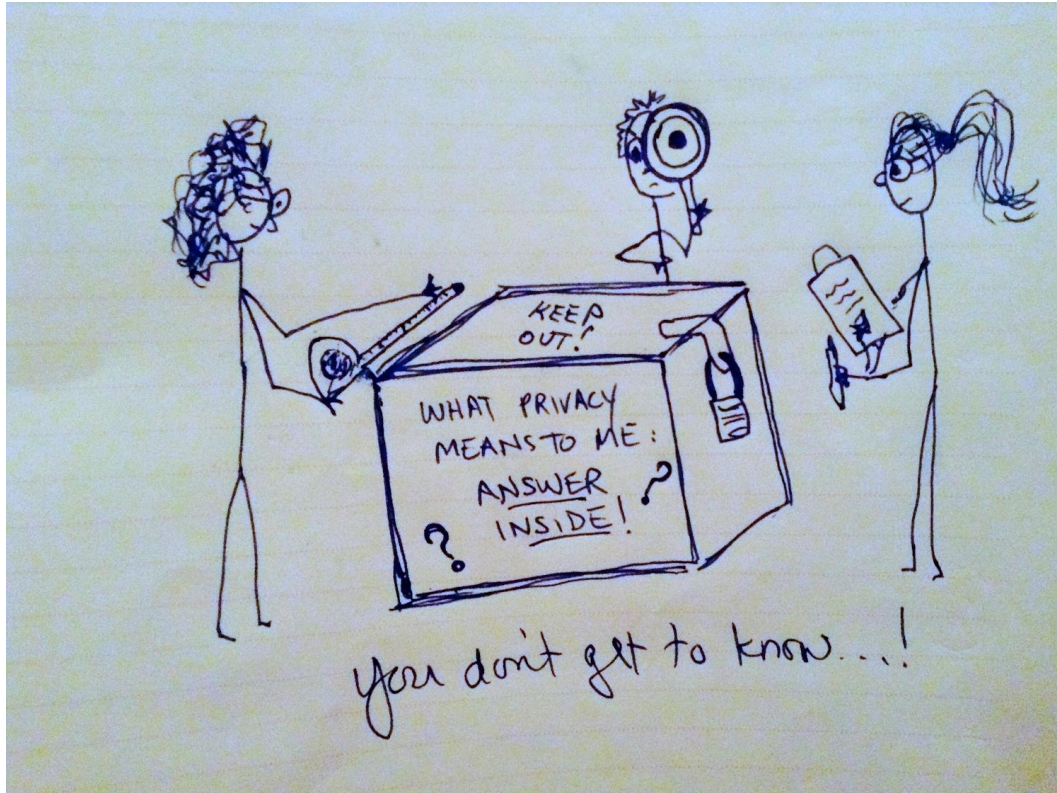 KEEP
OUT!
WHAT PRIVACY
MEANS TO ME:
ANSWER
INSIDE!
?
?
you don't get to know...!